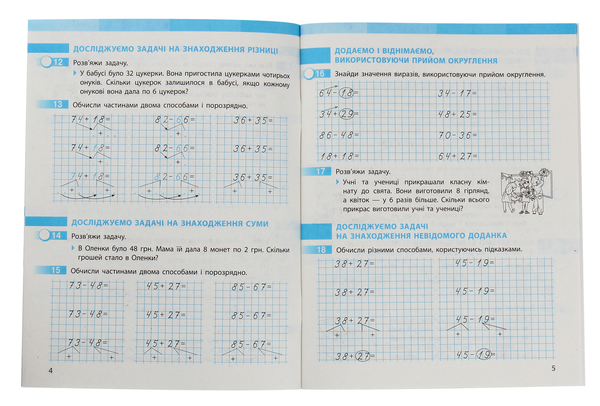 ДОСЛІДЖУЄМО ЗАДАЧІ НА ЗНАХОДЖЕННЯ РІЗНИЦІ
12 Розв'яжи задачу.
У бабусі було 32 цукерки. Вона пригостила цукерками чотирьох
онуків. Скільки цукерок залишилося в бабусі, якщо кожному
онукові вона дала по 6 цукерок?
13 Обчисли частинами двома способами і порозрядно.
74+18= 82-66= 36+35=
74+18= 82-66= 36+35=
74+18= 82-66= 36+35=
+ - +
ДОСЛІДЖУЄМО ЗАДАЧІ НА ЗНАХОДЖЕННЯ СУМИ
14 Розв'яжи задачу.
В Оленки було 48 грн. Мама їй дала 8 монет по 2 грн. Скільки
грошей стало в Оленки?
15 Обчисли частинами двома способами і порозрядно.
73-48= 45+27= 85-67=
73-48= 45+27= 85-67=
73-48= 45+27= 85-67=
73-48= 45+27= 85-67=
+ + + + + +
4
ДОДАЄМО І ВІДНІМАЄМО,
ВИКОРИСТОВУЮЧИ ПРИЙОМ ОКРУГЛЕННЯ
16 Знайди значення виразів, використовуючи прийом округлення.
64-18= 34-17=
34+29= 48+25=
86-48= 70-36=
18+18= 64+27=
17 Розв'яжи задачу.
Учні та учениці прикрашали класну кім-
нату до свята. Вони виготовили 8 гірлянд,
а квіток — у 6 разів більше. Скільки всього
прикрас виготовили учні та учениці?
ДОСЛІДЖУЄМО ЗАДАЧІ
НА ЗНАХОДЖЕННЯ НЕВІДОМОГО ДОДАНКА
18 Обчисли різними способами, користуючись підказками.
38+27= 45-19=
38+27= 45-19=
38+27= 45-19=
+ + + +
38+27= 45-19=
5